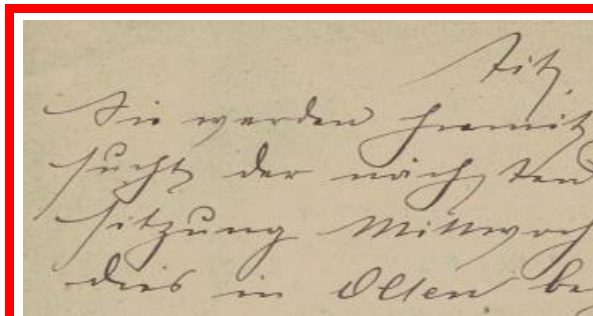 Tit.
Sie werden hiemit
sucht der nächsten
sitzung Mittwoch
dies in Olten be